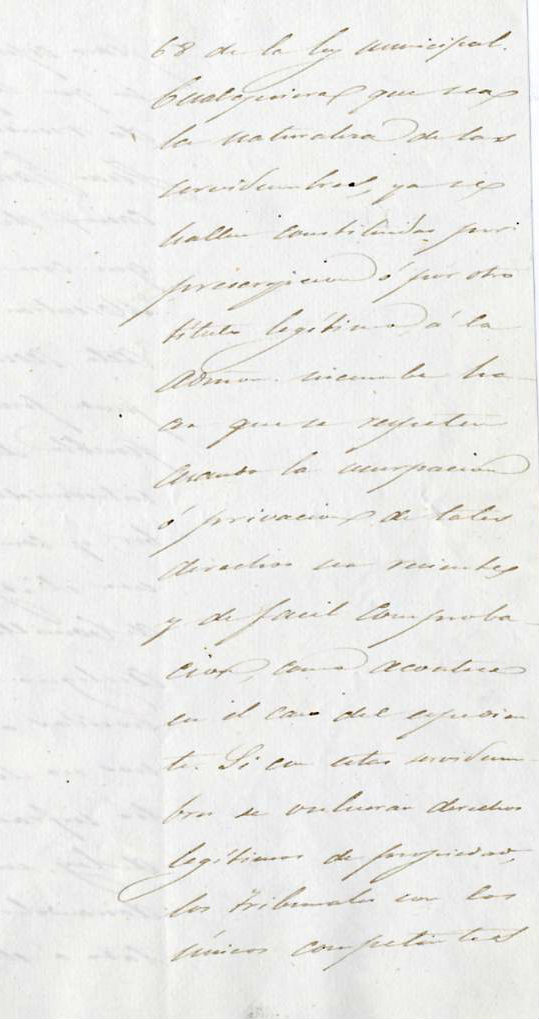 68 de la ley municipal.
Cualquiera que sea
la naturaleza de las
servidumbres, ya se
hallen constituidas por
prescripcion ó por otro
título legítimo, á la
Admon. incumbe ha-
cer que se respeten
cuando la usurpacion
ó privacion de tales
derechos sea reciente
y de facil comproba-
cion, como acontece
en el caso del espedien
te. Si con estas servidum-
bres se vulneran derechos
legítimos de propiedad,
los tribunales son los
únicos competentes